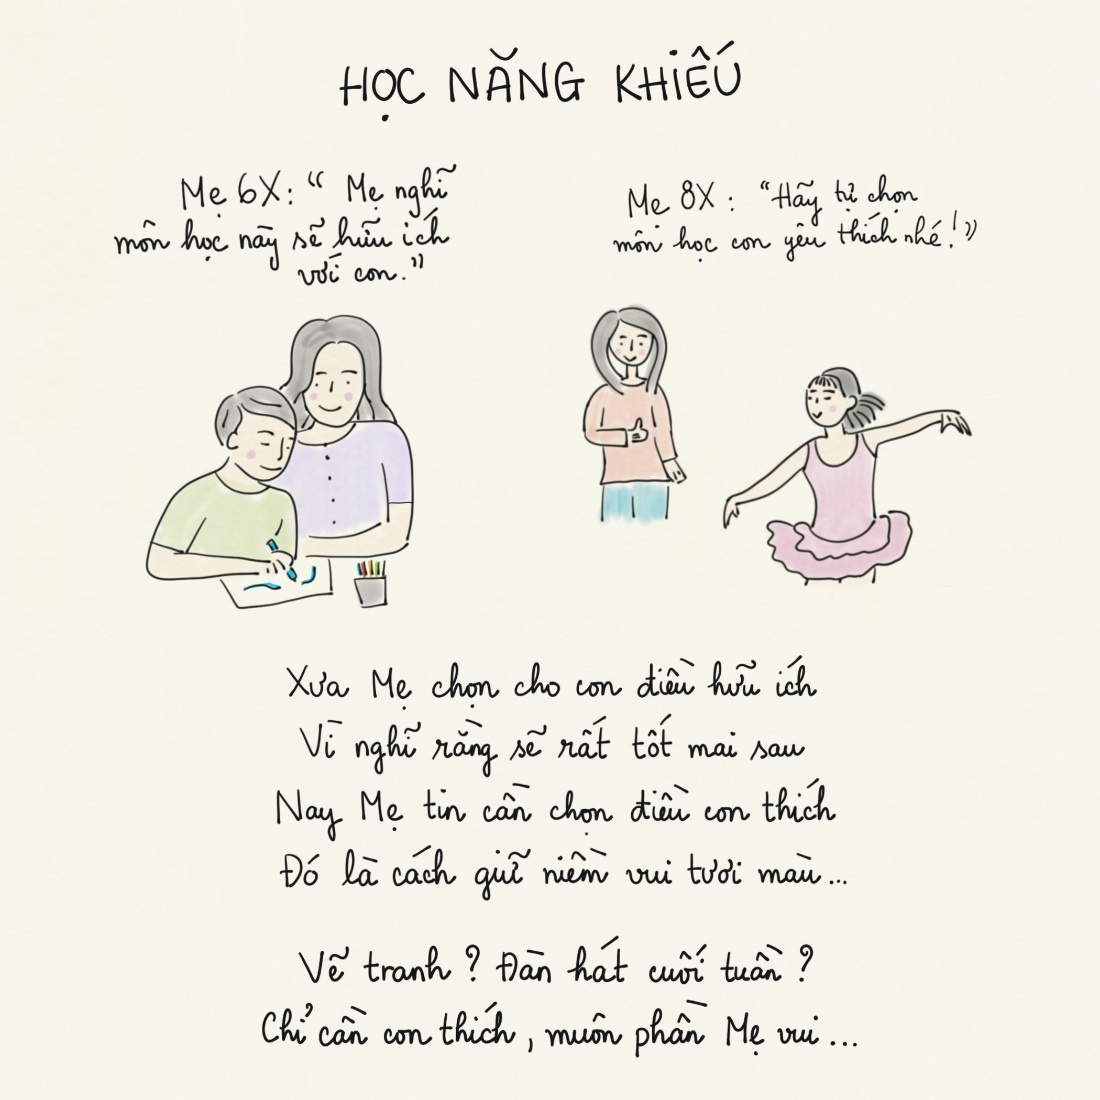 HỌC NĂNG KHIẾU
Mẹ 6X: “ Mẹ nghĩ
môn học này sẽ hữu ích
với con.”
Mẹ 8X : “Hãy tự chọn
môn học con yêu thích nhé!”
Xưa Mẹ chọn cho con điều hữu ích
Vì nghĩ rằng sẽ rất tốt mai sau
Nay Mẹ tin cần chọn điều con thích
Đó là cách giữ niềm vui tươi màu...
Vẽ tranh ? Đàn hát cuối tuần ?
Chỉ cần con thích, muôn phần Mẹ vui...